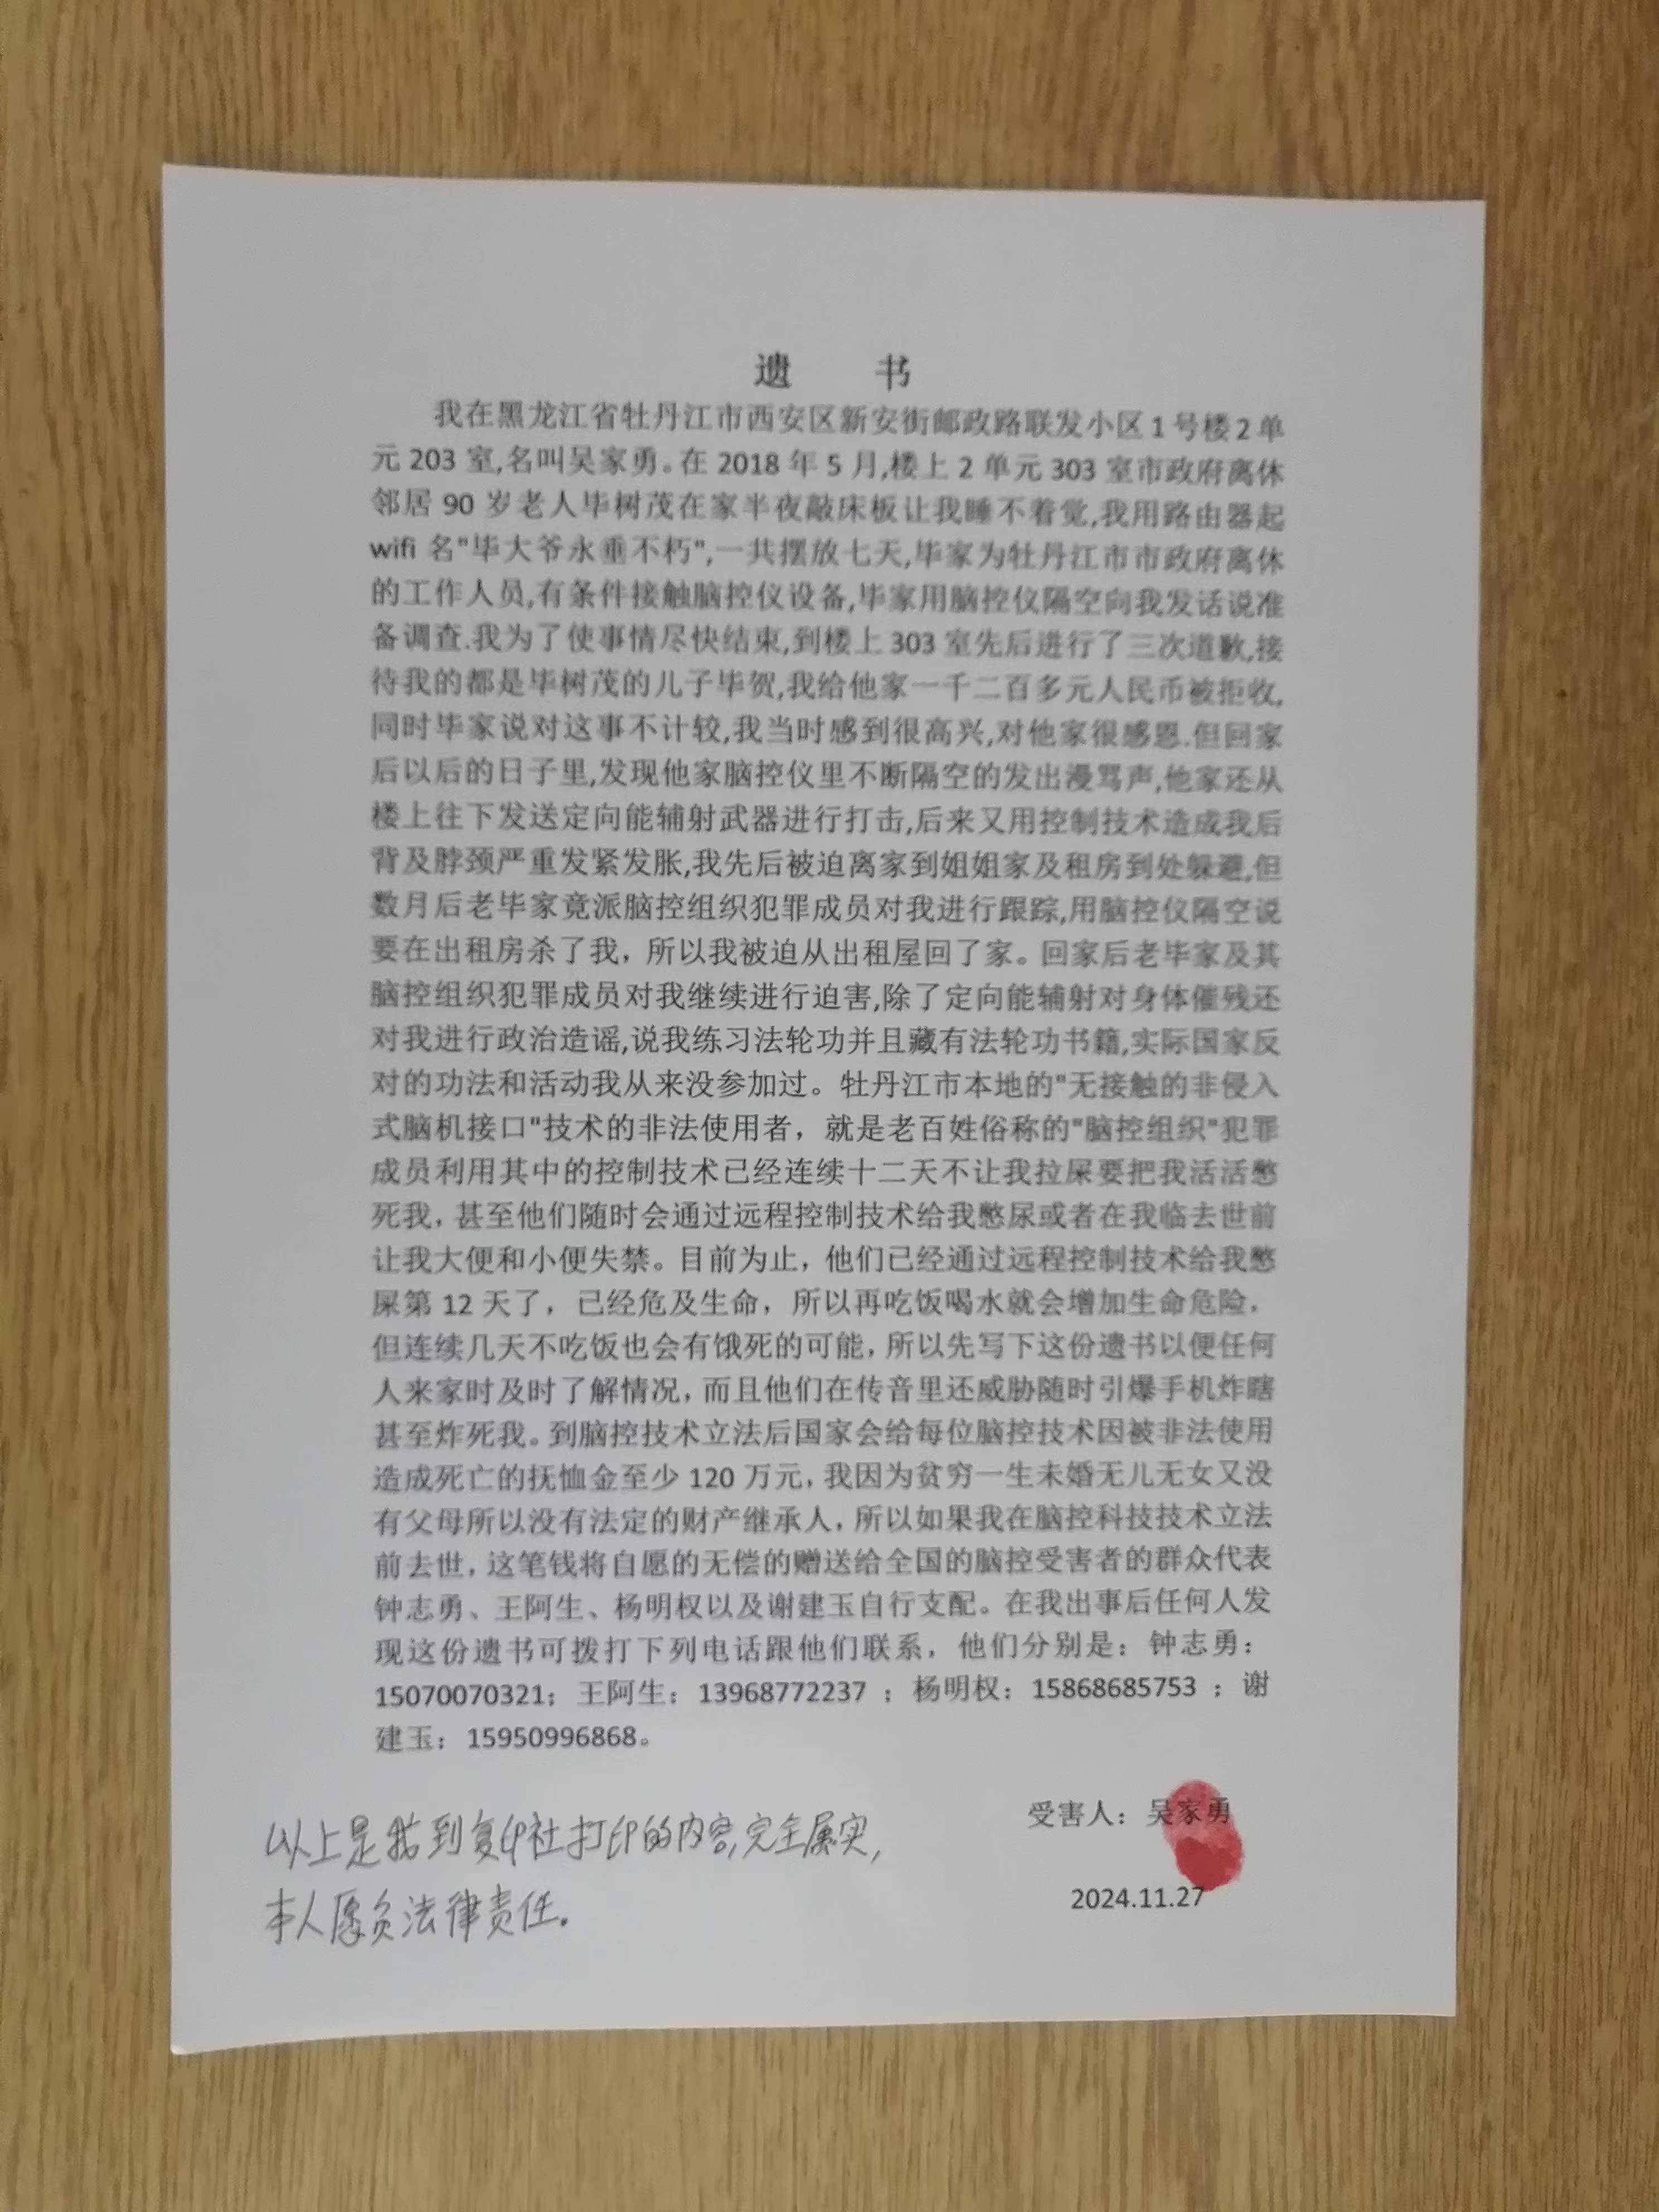 遗 书
我在黑龙江省牡丹江市西安区新安街邮政路联发小区1号楼2单
元 203 室,名叫吴家勇。在 2018 年 5 月,楼上 2 单元 303 室市政府离休
邻居 90 岁老人毕树茂在家半夜敲床板让我睡不着觉,我用路由器起
wifi 名"毕大爷永垂不朽",一共摆放七天,毕家为牡丹江市市政府离休
的工作人员,有条件接触脑控仪设备,毕家用脑控仪隔空向我发话说准
备调查.我为了使事情尽快结束,到楼上 303 室先后进行了三次道歉,接
待我的都是毕树茂的儿子毕贺,我给他家一千二百多元人民币被拒收,
同时毕家说对这事不计较,我当时感到很高兴,对他家很感恩.但回家
后以后的日子里,发现他家脑控仪里不断隔空的发出漫骂声,他家还从
楼上往下发送定向能辅射武器进行打击,后来又用控制技术造成我后
背及脖颈严重发紧发胀,我先后被迫离家到姐姐家及租房到处躲避,但
数月后老毕家竟派脑控组织犯罪成员对我进行跟踪,用脑控仪隔空说
要在出租房杀了我，所以我被迫从出租屋回了家。回家后老毕家及其
脑控组织犯罪成员对我继续进行迫害,除了定向能辅射对身体催残还
对我进行政治造谣,说我练习法轮功并且藏有法轮功书籍,实际国家反
对的功法和活动我从来没参加过。牡丹江市本地的"无接触的非侵入
式脑机接口"技术的非法使用者，就是老百姓俗称的"脑控组织"犯罪
成员利用其中的控制技术已经连续十二天不让我拉屎要把我活活憋
死我，甚至他们随时会通过远程控制技术给我憋尿或者在我临去世前
让我大便和小便失禁。目前为止，他们已经通过远程控制技术给我憋
屎第 12 天了，已经危及生命，所以再吃饭喝水就会增加生命危险，
但连续几天不吃饭也会有饿死的可能，所以先写下这份遗书以便任何
人来家时及时了解情况，而且他们在传音里还威胁随时引爆手机炸瞎
甚至炸死我。到脑控技术立法后国家会给每位脑控技术因被非法使用
造成死亡的抚恤金至少 120 万元，我因为贫穷一生未婚无儿无女又没
有父母所以没有法定的财产继承人，所以如果我在脑控科技技术立法
前去世，这笔钱将自愿的无偿的赠送给全国的脑控受害者的群众代表
钟志勇、王阿生、杨明权以及谢建玉自行支配。在我出事后任何人发
现这份遗书可拨打下列电话跟他们联系，他们分别是：钟志勇：
15070070321；王阿生：13968772237 ；杨明权：15868685753 ；谢
建玉：15950996868。
受害人：吴家勇
2024.11.27
以上是我到复印社打印的内容,完全属实,
本人愿负法律责任。